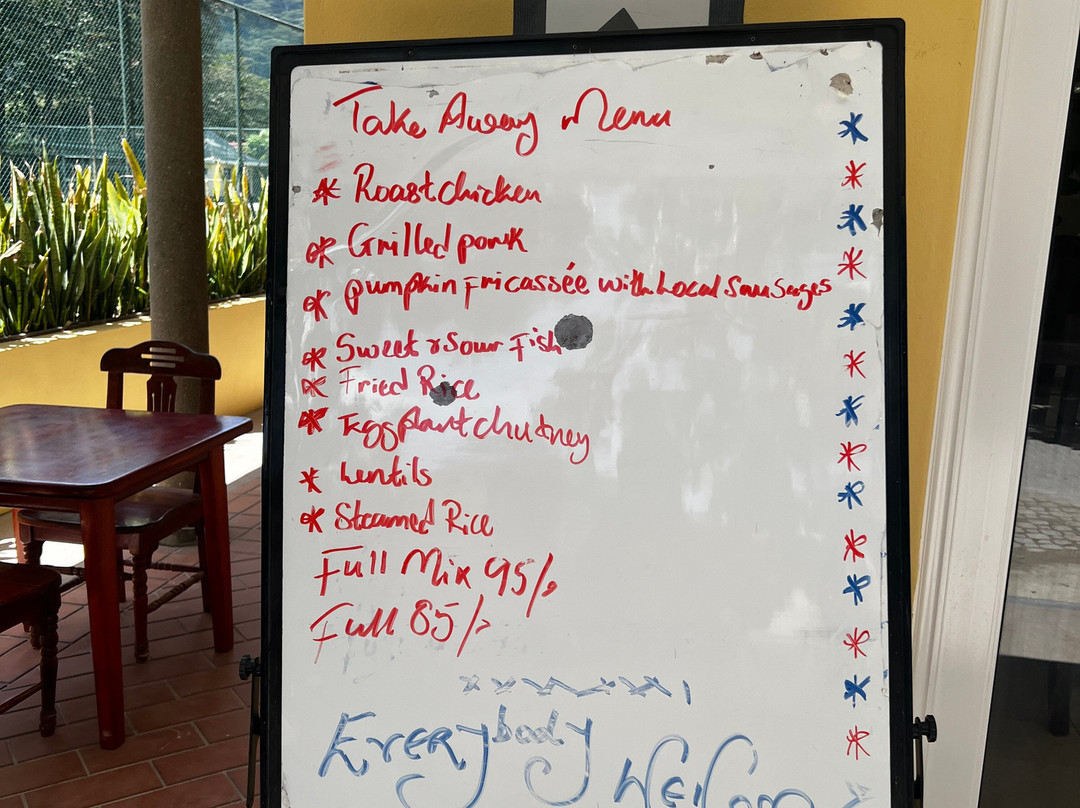 Take Away Menu
* Roast chicken
* Grilled pork
* pumpkin Fricassée with Local Sausages
* Sweet & Sour Fish
* Fried Rice
* Eggplant chutney
* Lentils
* Steamed Rice
Full Mix 95/-
Full 85/-
Everybody